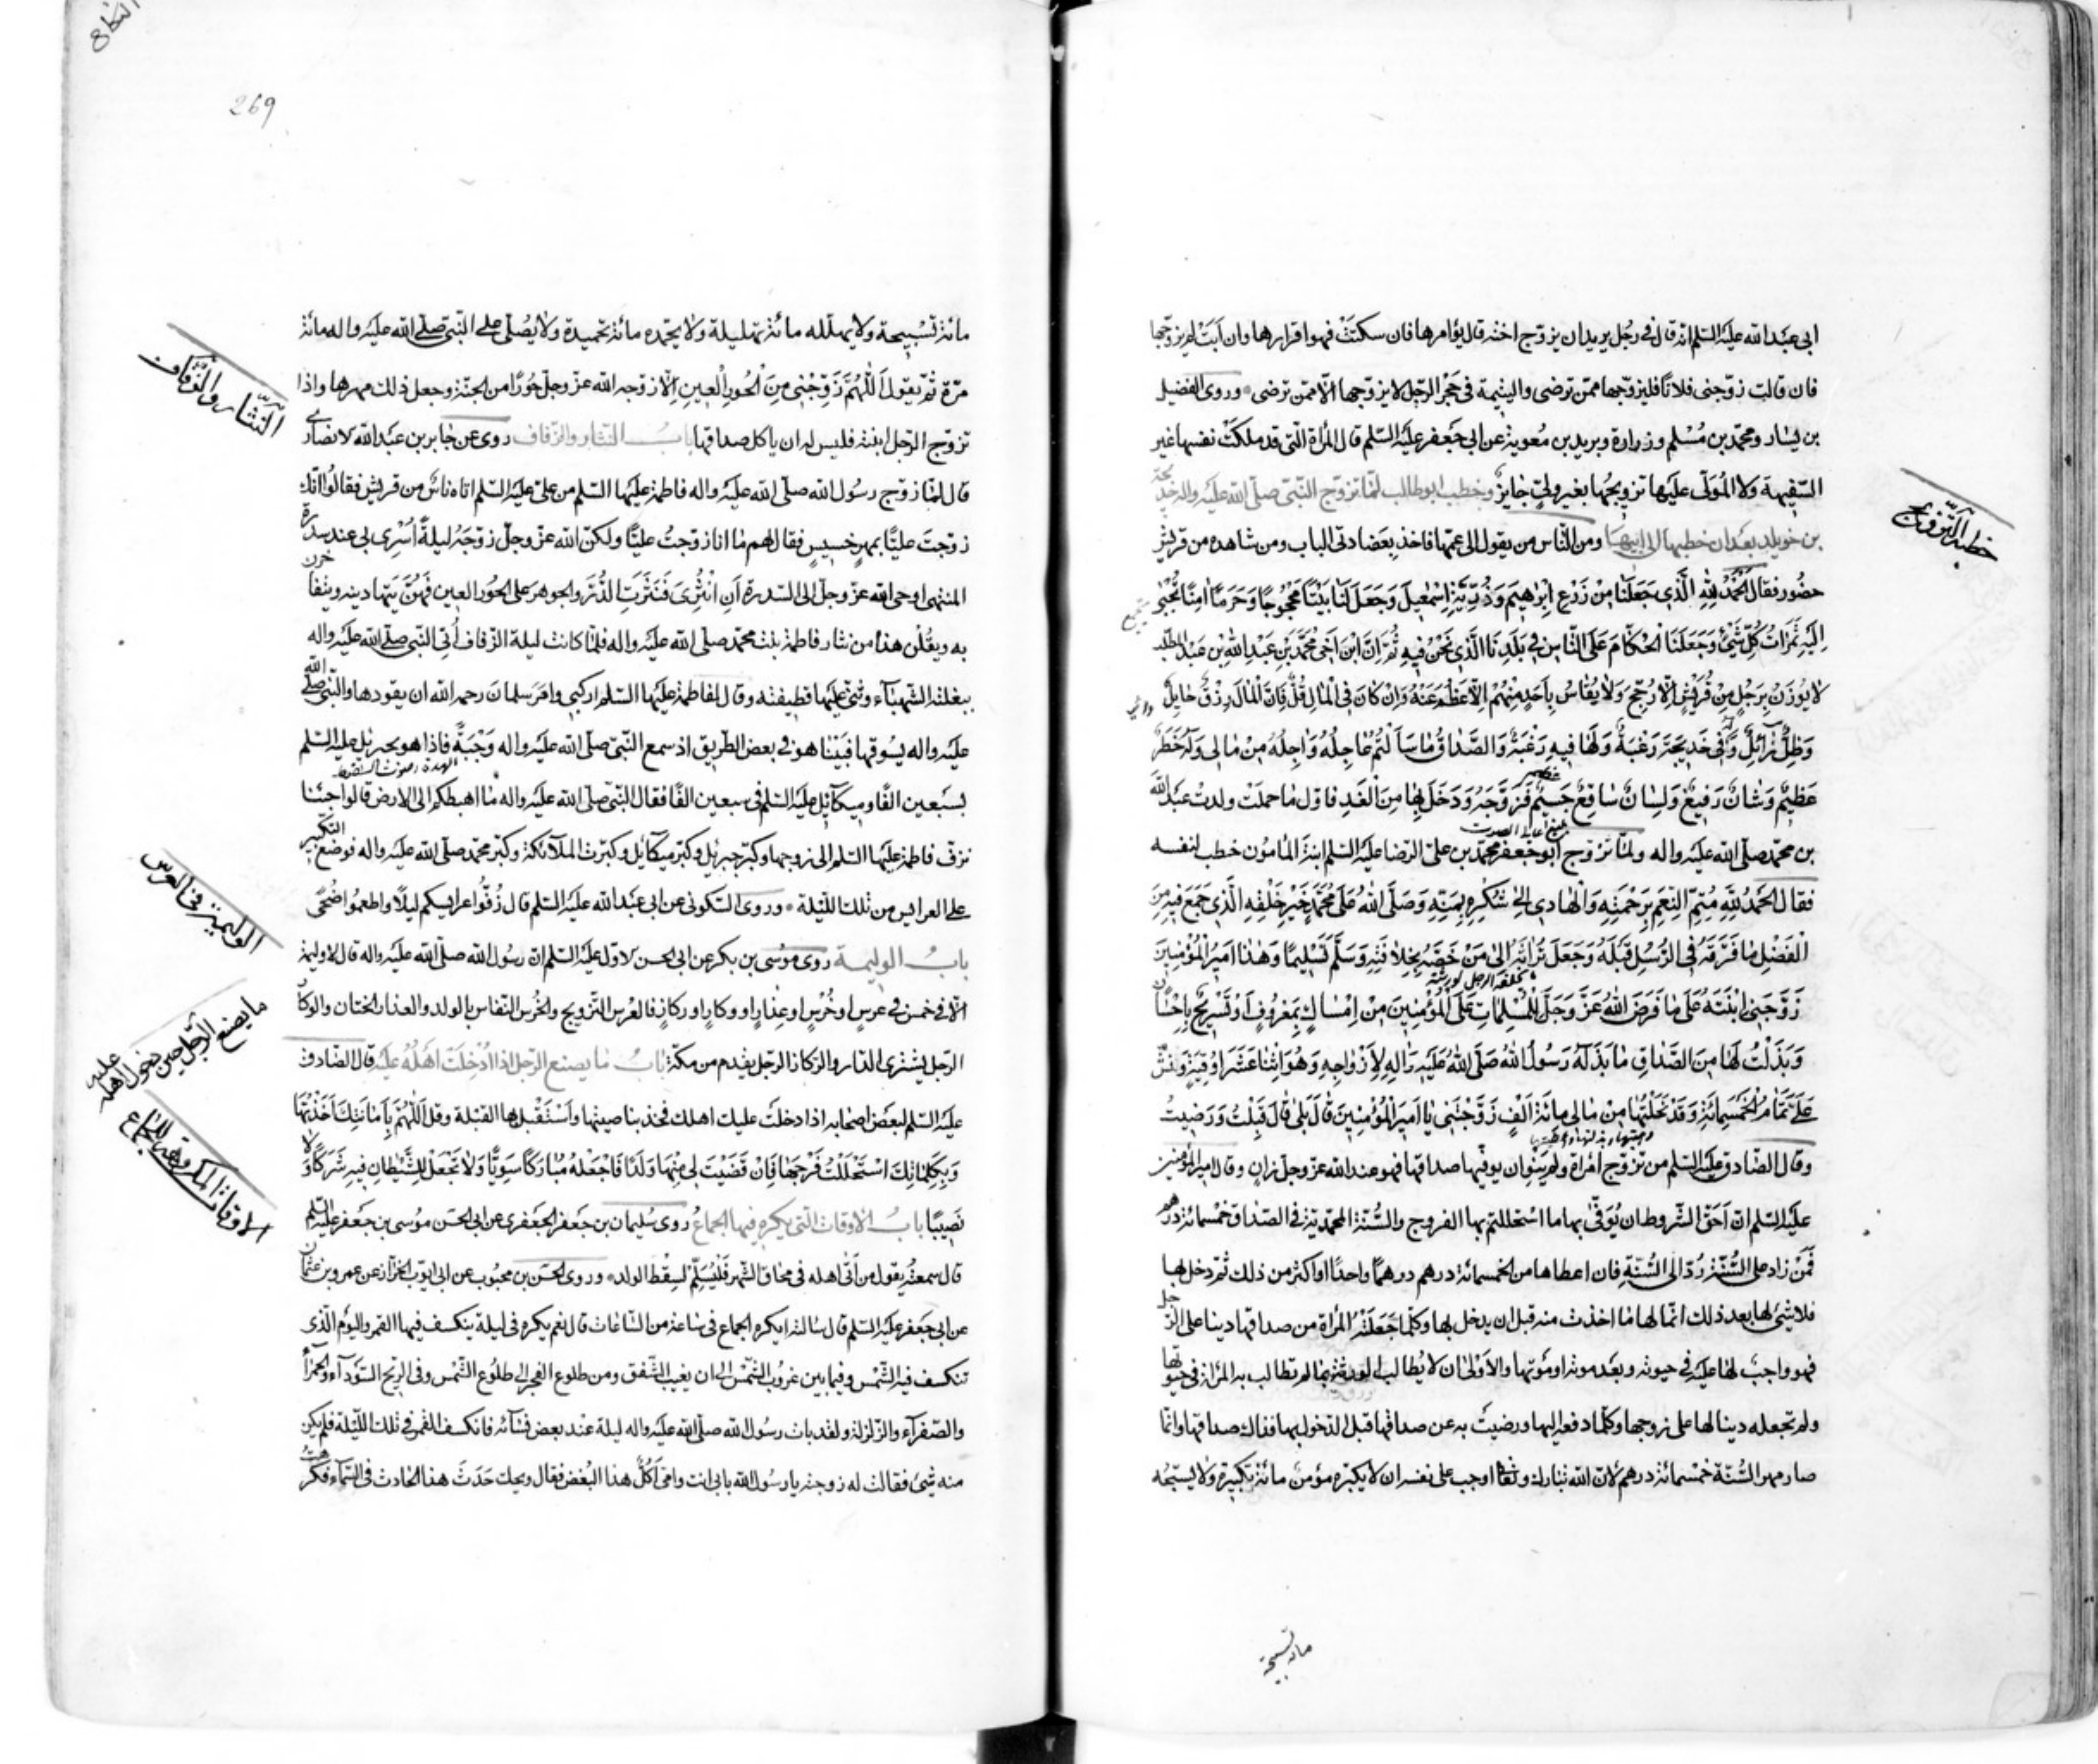 ابى عبد الله عليه السلم انه قال فى رجل يريد ان يزوج اخته قال يؤامرها فان سكتت فهو اقرارها وان ابت لم يزوجها
فان قالت زوجنى فلانا فليزوجها ممن ترضى واليتيمة فى حجر الرجل لا يزوجها الا ممن ترضى وروى الفضيل
بن يسار ومحمد بن مسلم وزرارة وبريد بن معوية عن ابى جعفر عليه السلم قال المرأة التى قد ملكت نفسها غير
السفيهة ولا المولى عليها تزويجها بغير ولى جايز وخطب ابو طالب لما تزوج النبى صلى الله عليه واله خديجة
بن خويلد بعد ان خطبها الى ابيها ومن الناس من يقول الى عمها فاخذ بعضادتى الباب ومن شاهده من قريش
حضور فقال الحمد لله الذى جعلنا من زرع ابرهيم وذرية اسمعيل وجعل لنا بيتا محجوجا وحرما امنا يجبى
اليه ثمرات كل شئ وجعلنا الحكام على الناس فى بلدنا الذى نحن فيه ثم ان ابن اخى محمد بن عبد الله بن عبد المطلب
لا يوزن برجل من قريش الا رجح ولا يقاس باحد منهم الا عظم عنه وان كان فى المال قل فان المال رزق حايل
وظل زائل وله فى خديجة رغبة ولها فيه رغبة والصداق ما سألتم عاجله واجله من مالى وله خطر
عظيم وشان رفيع ولسان شافع جسيم فزوجه ودخل بها من الغد فاول ما حملت ولدت عبد الله
بن محمد صلى الله عليه واله ولما تزوج ابو جعفر محمد بن على الرضا عليه السلم ابنة المامون خطب لنفسه
فقال الحمد لله متم النعم برحمته والهادى الى شكره بمنه وصلى الله على محمد خير خلقه الذى جمع فيه من
الفضل ما فرقه فى الرسل قبله وجعل تراثه الى من خصه بخلافته وسلم تسليما وهذا امير المؤمنين
زوجنى ابنته على ما فرض الله عز وجل للمسلمات على المؤمنين من امساك بمعروف او تسريح باحسان
وبذلت لها من الصداق ما بذله رسول الله صلى الله عليه واله لازواجه وهو اثنا عشر اوقية ونش
على تمام الخمسمائة وقد نحلتها من مالى مائة الف زوجتنى يا امير المؤمنين قال بلى قال قبلت ورضيت
وقال الصادق عليه السلم من تزوج امرأة ولم ينو ان يوفيها صداقها فهو عند الله عز وجل زان وقال امير المؤمنين
عليه السلم ان احق الشروط ان يوفى بها ما استحللتم بها الفروج والسنة المحمدية فى الصداق خمسمائة درهم
فمن زاد على السنة رد الى السنة فان اعطاها من الخمسمائة درهم درهما واحدا او اكثر من ذلك ثم دخل بها
فلا شئ لها بعد ذلك انما لها ما اخذت منه قبل ان يدخل بها وكلما جعلته المرأة من صداقها دينا على الرجل
فهو واجب لها عليه فى حيوته وبعد موته او موتها والاولى ان لا يطالب الورثة بما لم تطالب به المرأة فى حيوتها
ولم تجعله دينا لها على زوجها وكلما دفعه اليها ورضيت به عن صداقها قبل الدخول بها فذاك صداقها وانما
صار مهر السنة خمسمائة درهم لان الله تبارك وتعالى اوجب على نفسه ان لا يكبره مؤمن مائة تكبيرة ولا يسبحه
مائة تسبيحة
خطبة التزويج
269
مائة تسبيحة ولا يهلله مائة تهليلة ولا يحمده مائة تحميدة ولا يصلى على النبى صلى الله عليه واله مائة
مرة ثم يقول اللهم زوجنى من الحور العين الا زوجه الله عز وجل حورا من الجنة وجعل ذلك مهرها واذا
تزوج الرجل ابنته فليس له ان ياكل صداقها باب النثار والزفاف روى عن جابر بن عبد الله الانصارى
قال لما زوج رسول الله صلى الله عليه واله فاطمة عليها السلم من على عليه السلم اتاه ناس من قريش فقالوا انك
زوجت عليا بمهر خسيس فقال لهم ما انا زوجت عليا ولكن الله عز وجل زوجه ليلة اسرى بى عند سدرة
المنتهى اوحى الله عز وجل الى السدرة ان انثرى فنثرت الدر والجوهر على الحور العين فهن يتهادينه ويتفاخرن
به ويقلن هذا من نثار فاطمة بنت محمد صلى الله عليه واله فلما كانت ليلة الزفاف اتى النبى صلى الله عليه واله
ببغلته الشهباء وثنى عليها قطيفته وقال لفاطمة عليها السلم اركبى وامر سلمان رحمه الله ان يقودها والنبى صلى الله
عليه واله يسوقها فبينا هو فى بعض الطريق اذ سمع النبى صلى الله عليه واله وجبة فاذا هو بجبرئيل عليه السلم
بسبعين الفا وميكائيل عليه السلم فى سبعين الفا فقال النبى صلى الله عليه واله ما اهبطكم الى الارض قالوا جئنا
نزف فاطمة عليها السلم الى زوجها وكبر جبرئيل وكبر ميكائيل وكبرت الملائكة وكبر محمد صلى الله عليه واله فوضع التكبير
على العرايس من تلك الليلة وروى السكونى عن ابى عبد الله عليه السلم قال زفوا عرايسكم ليلا واطعموا ضحى
باب الوليمة روى موسى بن بكر عن ابى الحسن الاول عليه السلم ان رسول الله صلى الله عليه واله قال لا وليمة
الا فى خمس فى عرس او خرس او عذار او وكار او ركاز فالعرس التزويج والخرس النفاس بالولد والعذار الختان والوكار
الرجل يشترى الدار والركاز الرجل يقدم من مكة باب ما يصنع الرجل اذا ادخلت اهله عليه قال الصادق
عليه السلم لبعض اصحابه اذا دخلت عليك اهلك فخذ بناصيتها واستقبل بها القبلة وقل اللهم بامانتك اخذتها
وبكلماتك استحللت فرجها فان قضيت لى منها ولدا فاجعله مباركا سويا ولا تجعل للشيطان فيه شركا ولا
نصيبا باب الاوقات التى يكره فيها الجماع روى سليمان بن جعفر الجعفرى عن ابى الحسن موسى بن جعفر عليه السلم
قال سمعته يقول من اتى اهله فى محاق الشهر فليسلم لسقط الولد وروى الحسن بن محبوب عن ابى ايوب الخزاز عن عمرو بن عثمان
عن ابى جعفر عليه السلم قال سألته ايكره الجماع فى ساعة من الساعات قال نعم يكره فى ليلة ينكسف فيها القمر واليوم الذى
تنكسف فيه الشمس وفيما بين غروب الشمس الى ان يغيب الشفق ومن طلوع الفجر الى طلوع الشمس وفى الريح السوداء والحمراء
والصفراء والزلزلة ولقد بات رسول الله صلى الله عليه واله ليلة عند بعض نسائه فانكسف القمر فى تلك الليلة فلم يكن
منه شئ فقالت له زوجته يا رسول الله بابى انت وامى اكل هذا البغض فقال ويحك حدث هذا الحادث فى السماء فكرهت
النثار والزفاف
الوليمة فى العرس
ما يصنع الرجل حين دخول اهله عليه
الاوقات المكروهة للجماع